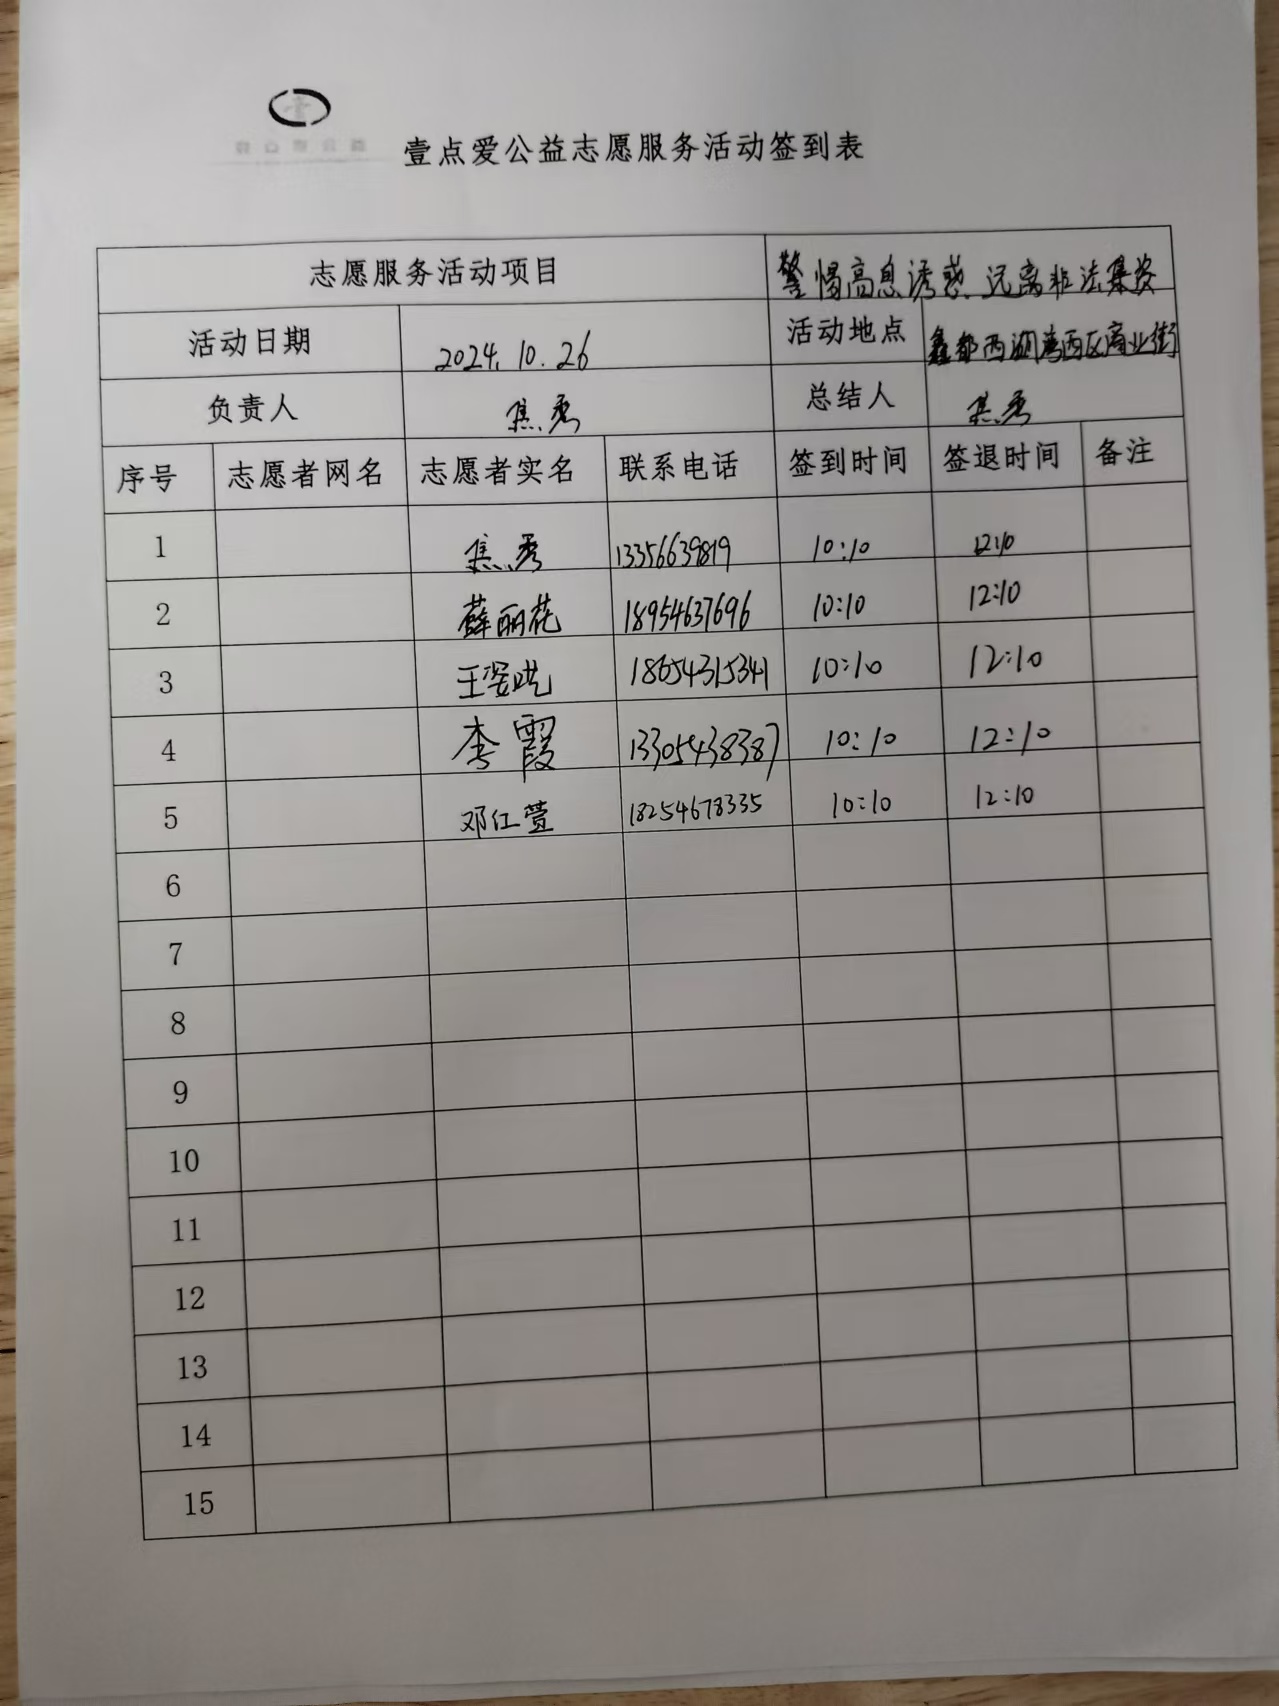 壹点爱公益志愿服务活动签到表
志愿服务活动项目 警惕高息诱惑、远离非法集资
活动日期 2024.10.26 活动地点 鑫都西湖湾西区商业街
负责人 焦秀 总结人 焦秀
序号 志愿者网名 志愿者实名 联系电话 签到时间 签退时间 备注
1 焦秀 13356639819 10:10 12:10
2 薛丽花 18954637696 10:10 12:10
3 王 18654315341 10:10 12:10
4 李霞 13305438387 10:10 12:10
5 邓红萱 18254678335 10:10 12:10
6
7
8
9
10
11
12
13
14
15